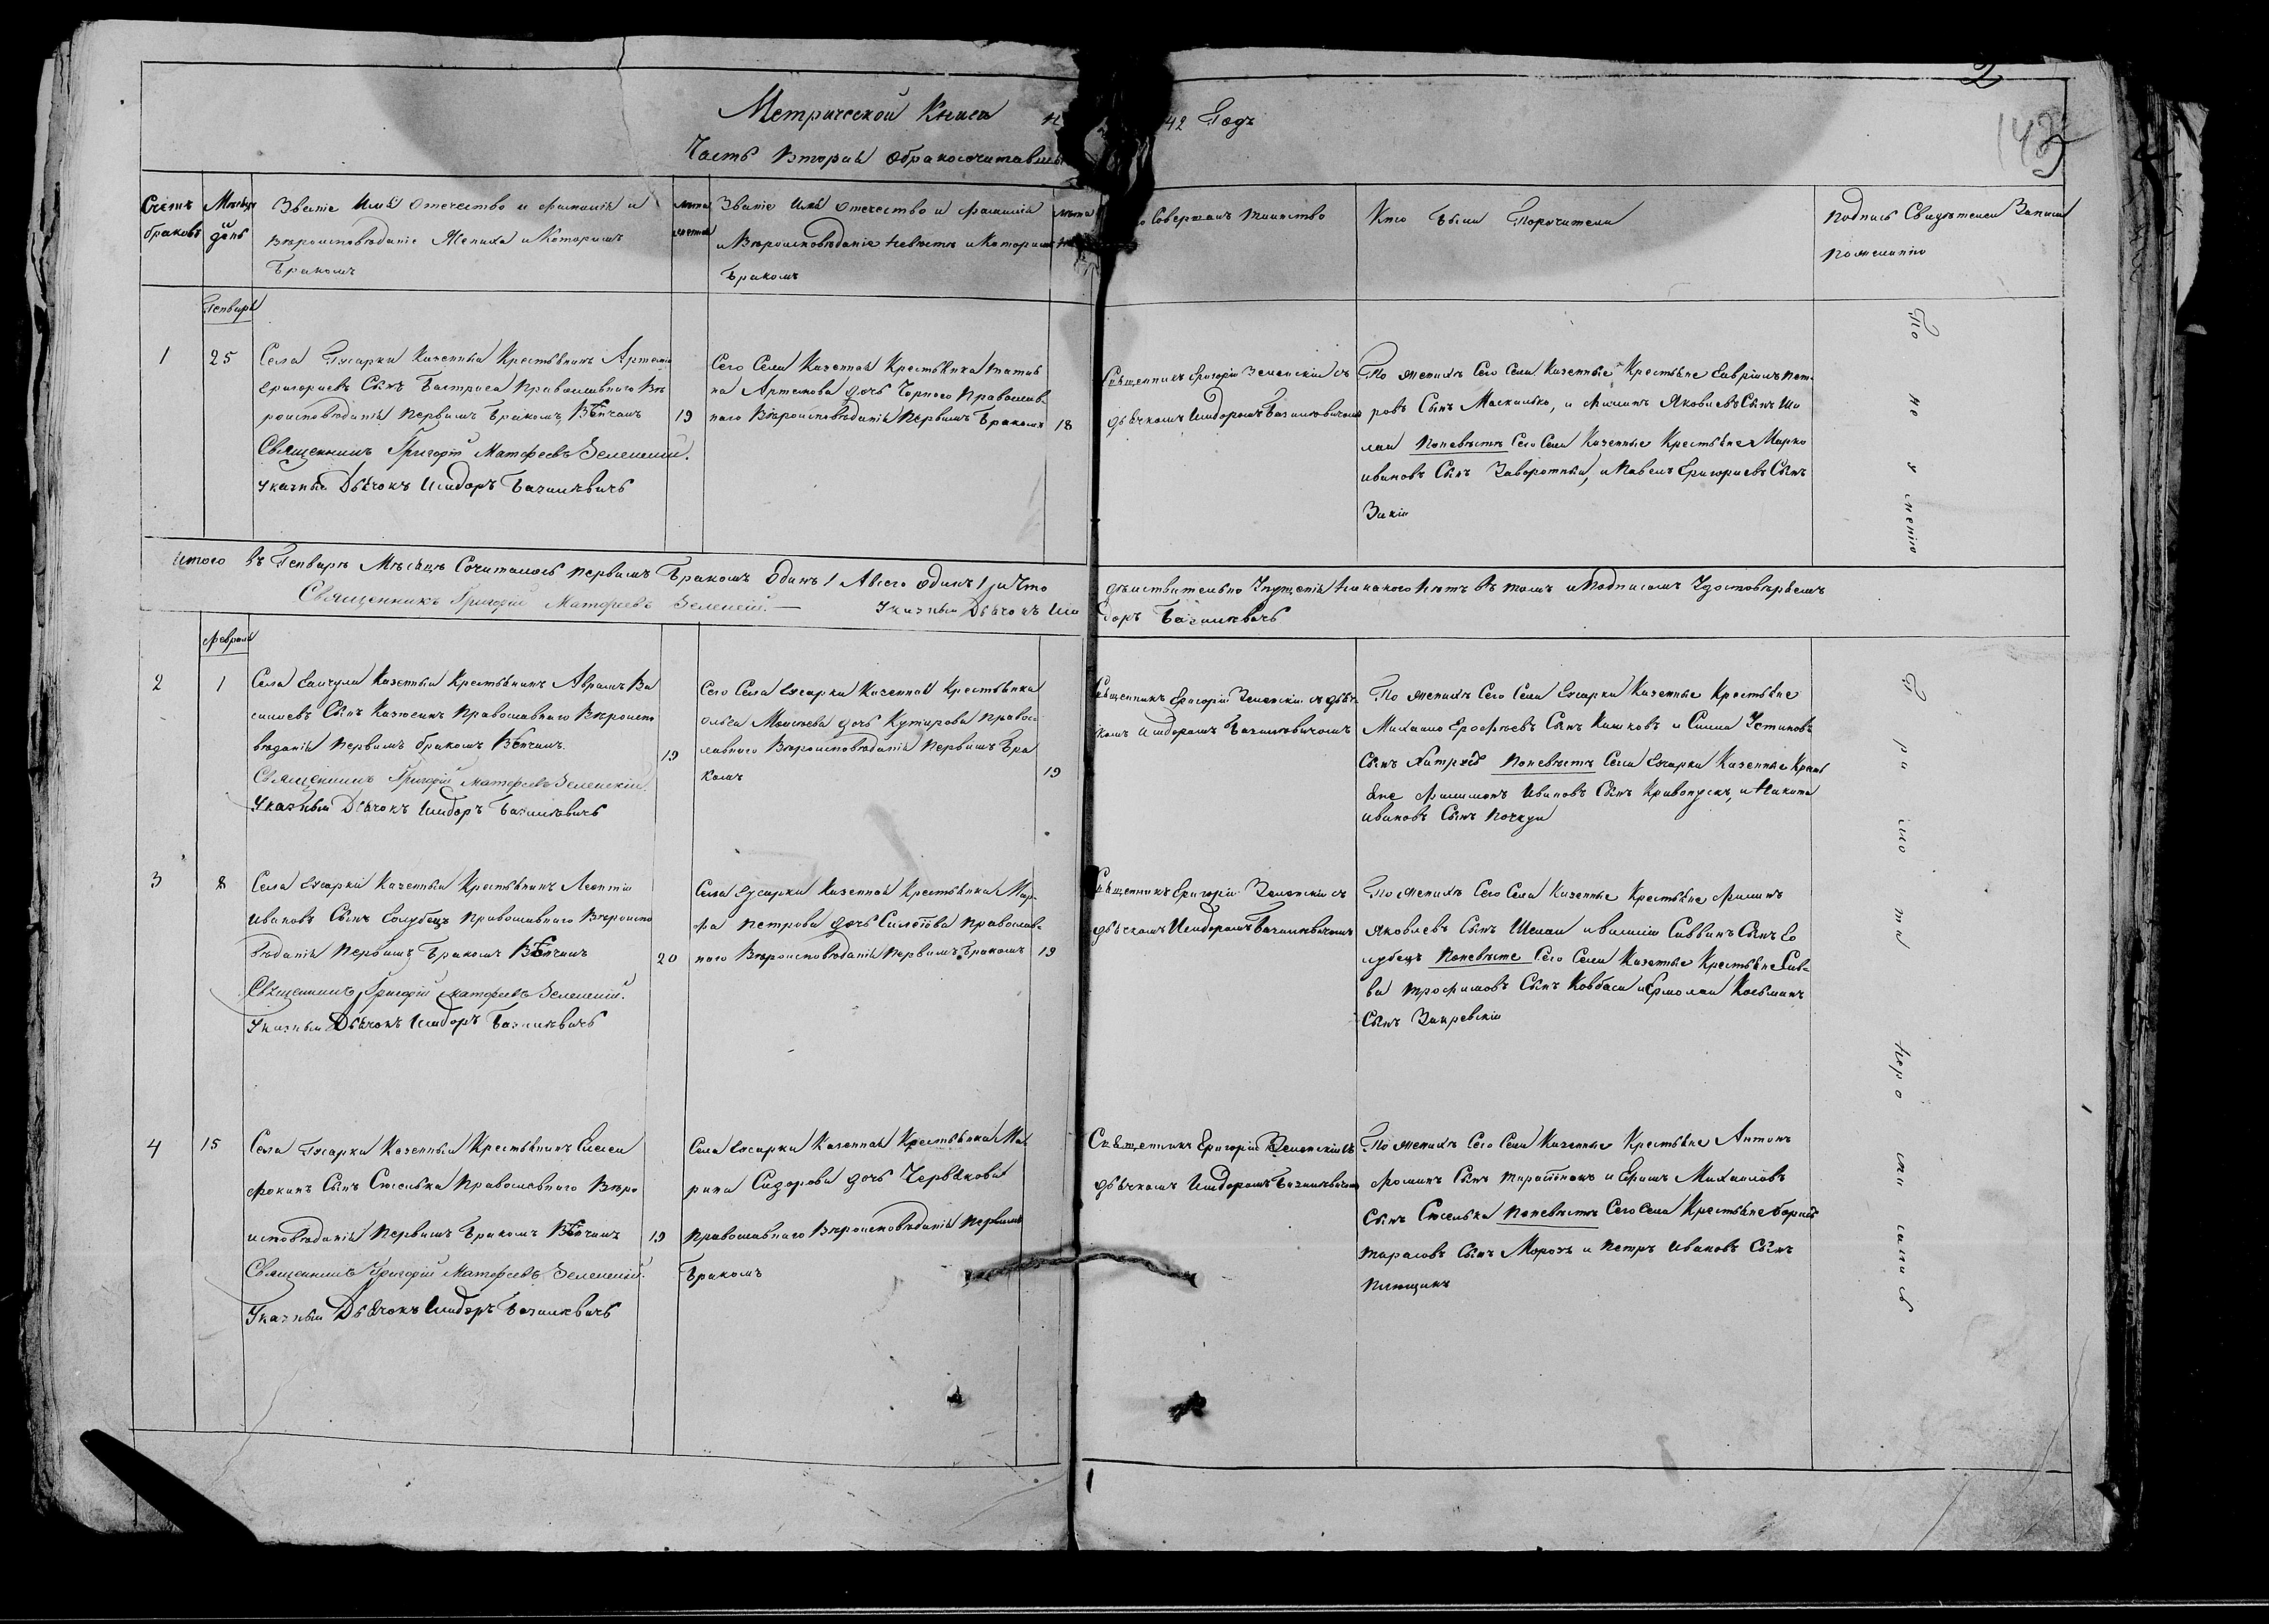 2
143
Метрической Книги н 42 Годъ
Часть Вторая обракосочитавши
Счетъ браковъ
Месяцъ и день
Званіе Имя отечество и фамилія и
вероисповѣданіе Жениха и Которимъ
Бракомъ
лета
Званіе Имя отечество и фамилія
и Вѣроисповѣданіе невѣсти и Которимъ
Бракомъ
лета
Совершалъ таинство
Кто Были Поручители
подпись Свидѣтелей Записи
по желанію
Генварь
1
25
Села Гусарки Казенный Крестьянинъ Артемій
Григориевъ Сынъ Православнаго Вѣ
роисповѣданія первимъ Бракомъ, Вѣнчалъ
Священникъ Григорій Матфеевъ Зеленскій.
Указный Дьячокъ Исидоръ Базилевичъ
19
Сего Села Казенная Крестьянка Татия
на Артемова дочь Чорного Православ
наго Вѣроисповѣданія Первимъ Бракомъ
18
Священникъ Григорій Зеленскій съ
дьячкомъ Исидоромъ Базилевичомъ
По женихѣ Сего Села Казенные Крестьяне Гаврііилъ пет
ровъ Сынъ Москалько, и Филипъ Яковлевъ Сынъ Ше
лай Поневѣстѣ Сего Села Казенные Крестьяне Марко
ивановъ Сынъ Заворотный, и Павелъ Григориевъ Сынъ
Зикій
итого въ Генварѣ Мѣсяцѣ Сочиталось первимъ Бракомъ Одинъ 1 Авсего Одинъ 1 / и Что
дѣиствительно Упущенія никакого Нѣтъ в томъ и Подписомъ Удостовѣряемъ
Священникъ Григорій Матфеевъ Зеленскій. — Указный Дьячокъ Иси
доръ Базилевичъ
Февраль
2
1
Села Гайчула Казенный Крестьянинъ Аврамъ Ва
силиевъ Сынъ Православнаго Вѣроиспо
вѣданія первимъ бракомъ Вѣнчалъ.
Священникъ Григорій Матфеевъ Зеленскій.
Указный Дьячокъ Исидоръ Базилевичъ
19
Сего Села Гусарки Казенная Крестьянка
Ольга Моисеева дочь Кутирова правос
лавного Вѣроисповѣданія первимъ Бра
комъ
19
Священникъ Григорій Зеленскій съ дьяч
комъ Исидоромъ Базилевичомъ
По женихѣ Сего Села Гусарки Казенные Крестьяне
Михаило Ерофѣевъ Сынъ и Силла Устиновъ
Сынъ Поневѣстѣ Села Гусарки Казенные Крест
яне Филимонъ Ивановъ Сынъ Кривопускъ, и Никита
ивановъ Сынъ Почкун
3
8
Села Гусарки Казенный Крестьянинъ Леонтій
Ивановъ Сынъ Голубецъ Православнаго Вѣроиспо
вѣданія Первимъ Бракомъ Вѣнчалъ
Священникъ Григорій Матфеевъ Зеленскій.
Указный Дьячокъ Исидоръ Базилевичъ
20
Села Гусарки Казенная Крестьянка Мар
фа Петрова дочь Православ
наго Вѣроисповѣданія Первимъ Бракомъ
19
Священникъ Григорій Зеленскій съ
дьячкомъ Исидоромъ Базилевичомъ
По женихѣ Сего Села Казенные Крестьяне Филипъ
Яковлевъ Сынъ Шелай и Саввинъ Сынъ Го
лубецъ Поневѣсте Сего Села Казенные Крестьяне Сав
ва Трофимовъ Сынъ Ковбаса и Ермолай Козьминъ
Сынъ Закревскій
4
15
Села Гусарки Казенный Крестьянинъ Елисей
Фокинъ Сынъ Православнаго Вѣро
исповѣданія Первимъ Бракомъ Вѣнчалъ
Священникъ Григорій Матфеевъ Зеленскій.
Указный Дьячокъ Исидоръ Базилевичъ
19
Села Гусарки Казенная Крестьянка Ма
рина Сидорова дочь Червякова
Православнаго Вѣроисповѣданія Первимъ
Бракомъ
Священникъ Григорій Зеленскій съ
дьячкомъ Исидоромъ Базилевичомъ
По женихѣ Сего Села Казенные Крестьяне Антонъ
Фоминъ Сынъ и Ефимъ Михаиловъ
Сынъ Поневѣстѣ Сего Села Крестьяне Борисъ
Тарасовъ Сынъ Морозъ и Петръ Ивановъ Сынъ
По не у менію
Гра мо ти неро спи сались